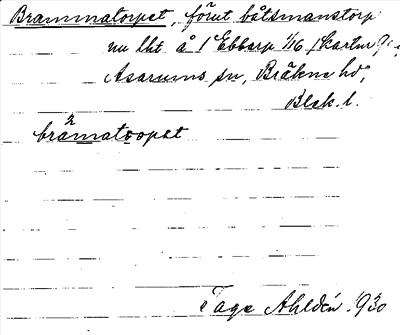 Brammatorpet, förut båtsmanstorp
nu lht å 1 Ebbarp 1/16
Asarums sn, Bräkne hd,
Blek. l.
bråmatorpet
Tage Ahldén 1930